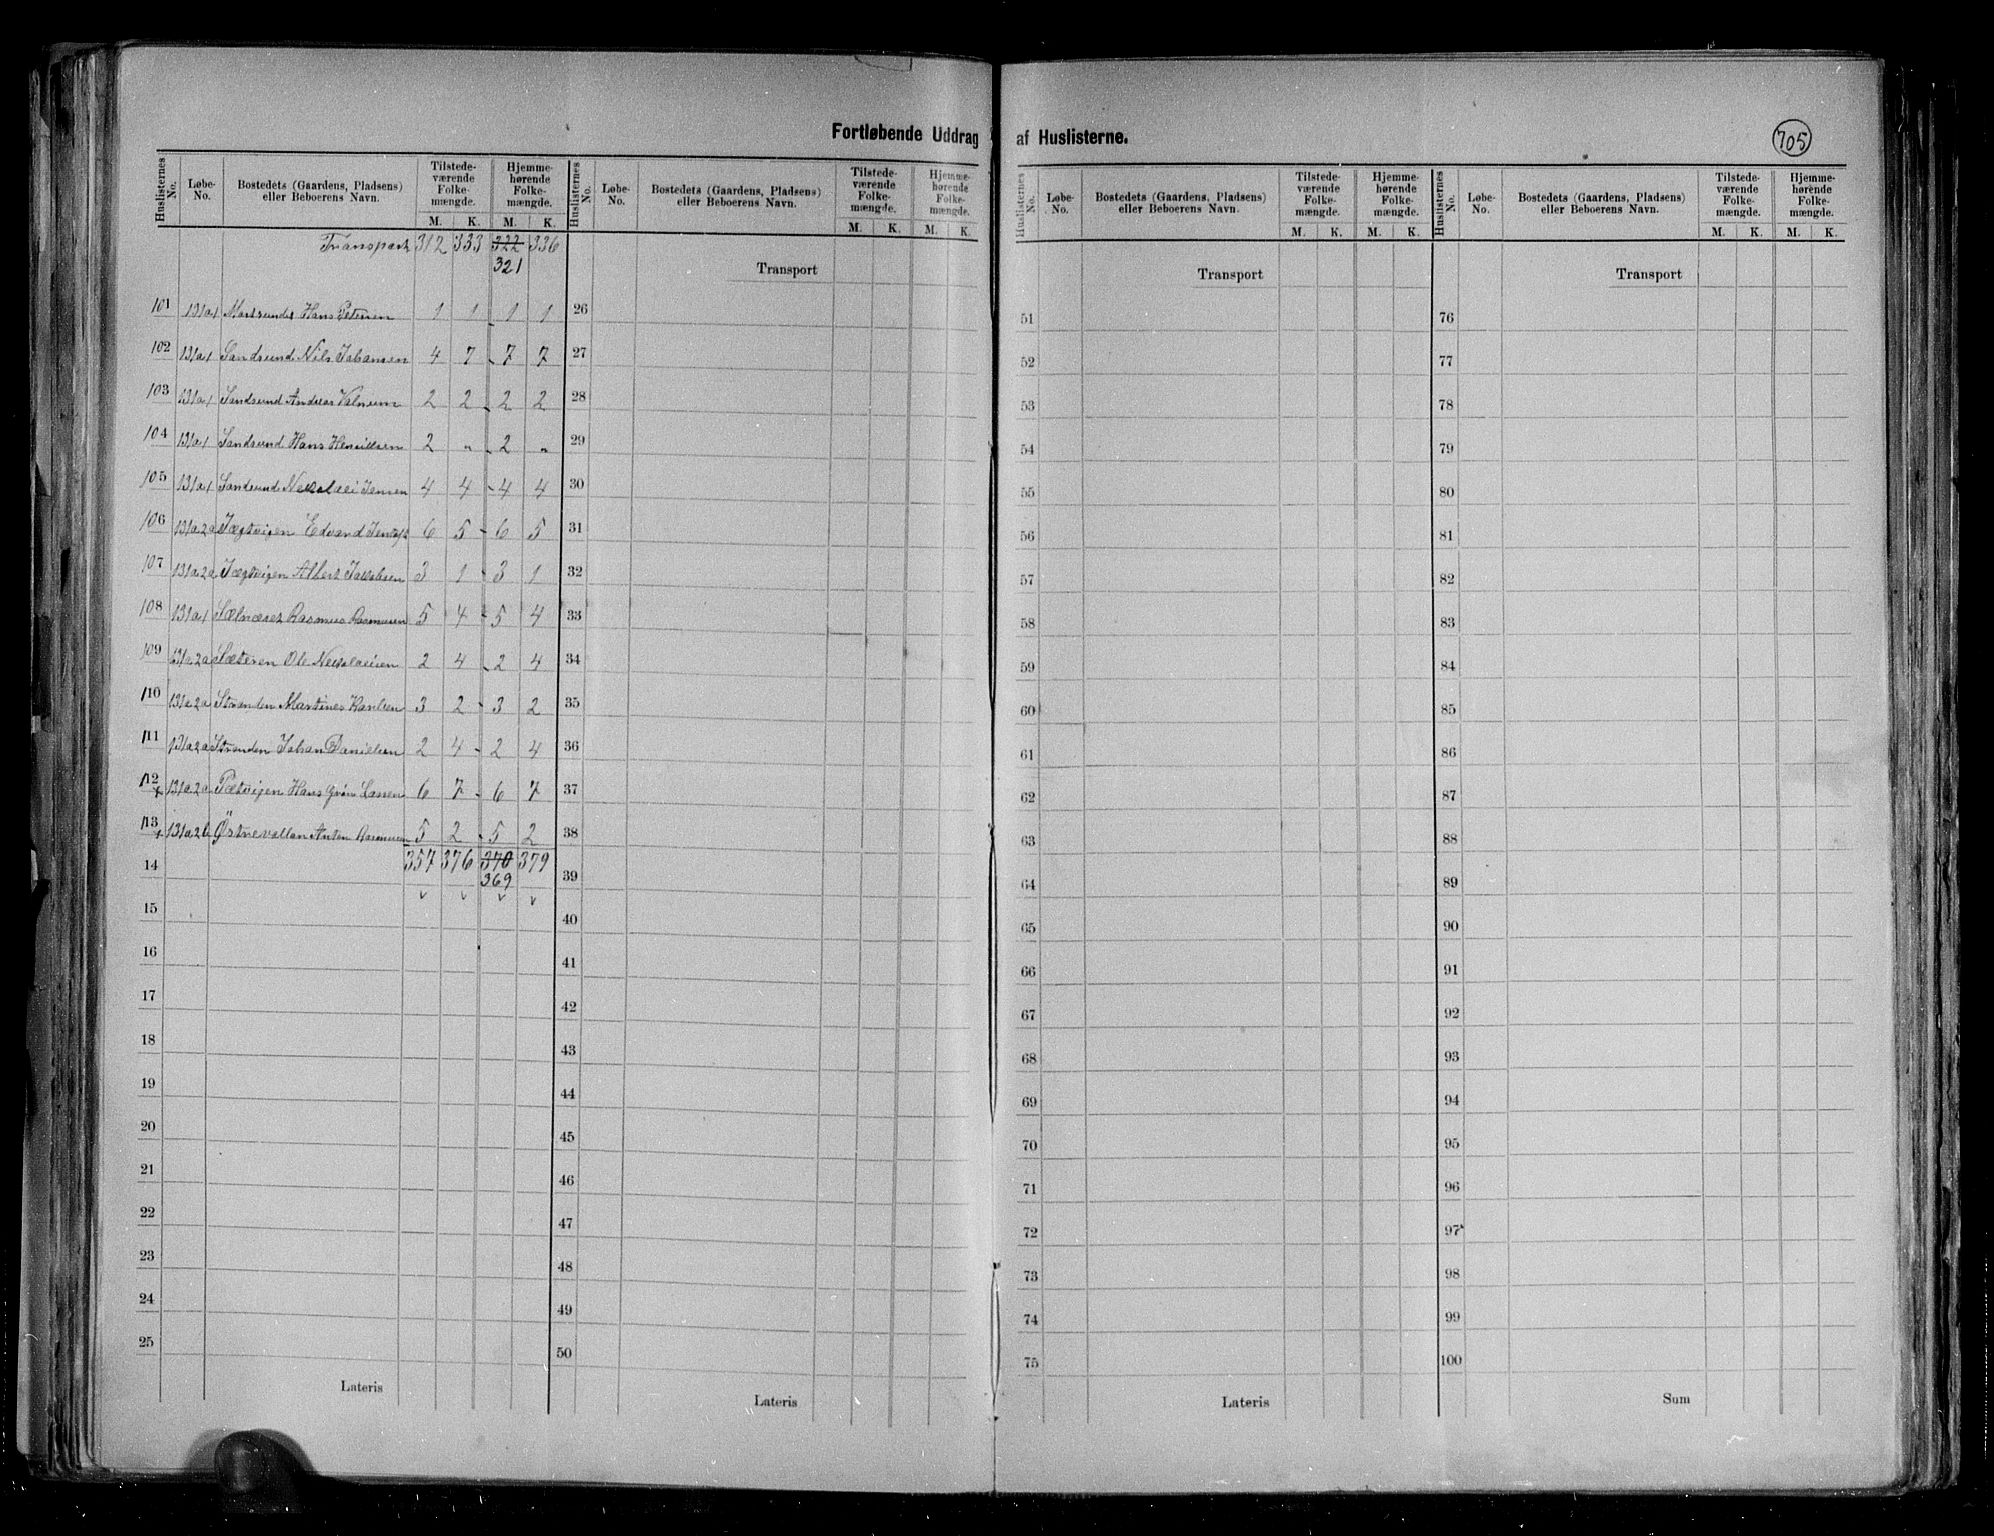 Fortløbende Uddrag af Huslisterne.
705
Huslisternes No. Løbe-No. Bostedets (Gaardens, Pladsens) eller Beboerens Navn. Tilstede-værende Folke-mængde. M. K. Hjemme-hørende Folke-mængde. M. K.
Transport 312 333 322 336
321
101 131a1 Hans Petersen 1 1 1 1
102 131a1 Sandsund Nils Johansen 4 7 7 7
103 131a1 Sandsund Andreas 2 2 2 2
104 131a1 Sandsund Hans 2 " 2 "
105 131a1 Sandsund Nikolai Jensen 4 4 4 4
106 131a2a Jægtvigen Edvard 6 5 6 5
107 131a2a Jægtvigen Albert Jakobsen 3 1 3 1
108 131a1 Rasmus Rasmusen 5 4 5 4
109 131a2a Sæteren Ole Nikolaisen 2 4 2 4
110 131a2a Stranden Martines 3 2 3 2
111 131a2a Stranden Johan Danielsen 2 4 2 4
112 131a2a Hans Grøn Larsen 6 7 6 7
113 131a2b Anton Rasmusen 5 2 5 2
14 357 376 370 379
369
15
16
17
18
19
20
21
22
23
24
25
Lateris
Huslisternes No. Løbe-No. Bostedets (Gaardens, Pladsens) eller Beboerens Navn. Tilstede-værende Folke-mængde. M. K. Hjemme-hørende Folke-mængde. M. K.
Transport
26
27
28
29
30
31
32
33
34
35
36
37
38
39
40
41
42
43
44
45
46
47
48
49
50
Lateris
Huslisternes No. Løbe-No. Bostedets (Gaardens, Pladsens) eller Beboerens Navn. Tilstede-værende Folke-mængde. M. K. Hjemme-hørende Folke-mængde. M. K.
Transport
51
52
53
54
55
56
57
58
59
60
61
62
63
64
65
66
67
68
69
70
71
72
73
74
75
Lateris
Huslisternes No. Løbe-No. Bostedets (Gaardens, Pladsens) eller Beboerens Navn. Tilstede-værende Folke-mængde. M. K. Hjemme-hørende Folke-mængde. M. K.
Transport
76
77
78
79
80
81
82
83
84
85
86
87
88
89
90
91
92
93
94
95
96
97
98
99
100
Sum